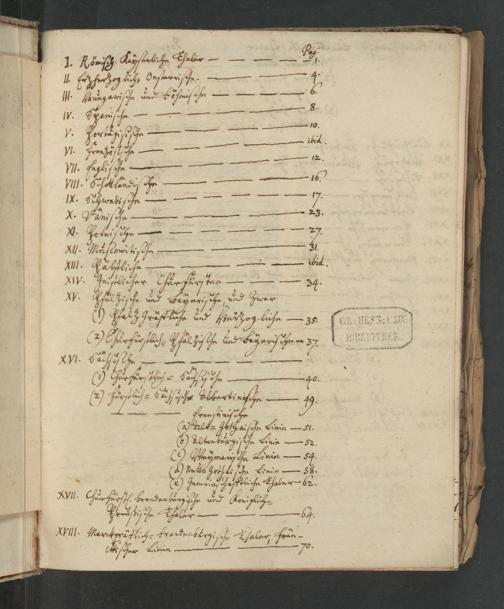 Pag.
I. Römisch Kayserliche Thaler — 1.
II. Ertzhertzogliche Oesterreichische — 4.
III. Hungarische und Böhmische — 6.
IV. Spanische — 8.
V. Portugisische — 10.
VI. Frantzösische — ibid.
VII. Englische — 12.
VIII. Schottländische — 16.
IX. Schwedische — 17.
X. Dänische — 23.
XI. Polnische — 27.
XII. Moscowitische — 31.
XIII. Päbstliche — ibid.
XIV. Geistlicher Churfürsten — 34.
XV. Pfältzische und Bayerische, und zwar
(1) Pfaltzgräfliche und Hertzogliche — 35.
(2) Churfürstlich Pfältzische und Bayerische — 37.
XVI. Sächsische —
(1) Churfürstlich-Sächsische — 40.
(2) Fürstlich-Sächsische Albertinische — 49.
— — Ernestinische
(a) Alt-Gothaische Linie — 51.
(b) Altenburgische Linie — 52.
(c) Weymarische Linie — 54.
(d) Neu-Gothische Linie — 58.
(e) Gemeinschaftliche Thaler — 62.
XVII. Churfürstl. Brandenburgische und Königlich-
Preußische Thaler — 64.
XVIII. Marckgräflich-Brandenburgische Thaler, Frän-
ckischer Linie — 70.
GR: HESS: UNIV:
BIBLIOTHEK.